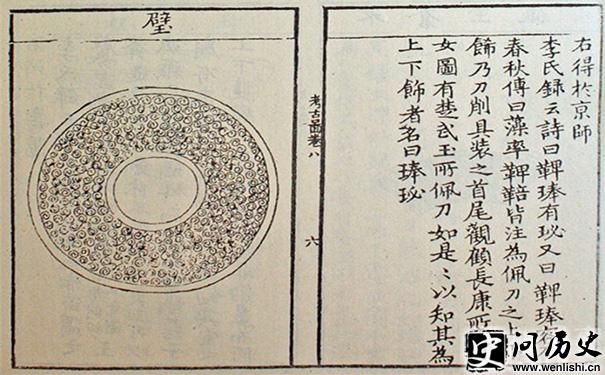 右得於京師
李氏録云詩曰鞞琫有珌又曰鞞琫
春秋傳曰藻率鞞鞛皆注為佩刀之上
飾乃刀削具装之首尾觀顧長康所
女圖有楚武王所佩刀如是〻以知其為
上下飾者名曰琫珌
考古圖卷八
六
璧
史问历史
www.wenlishi.cn